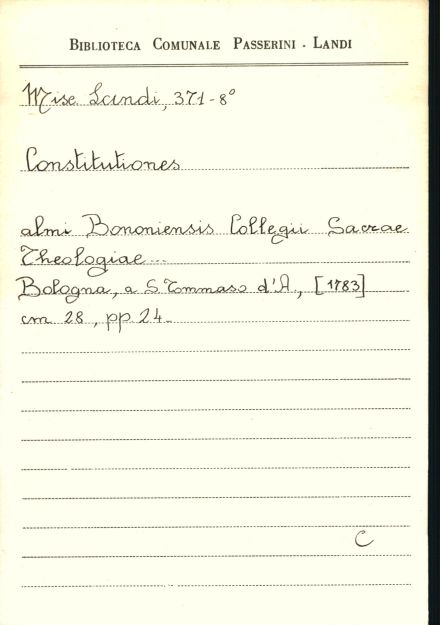 BIBLIOTECA COMUNALE PASSERINI - LANDI
Misc. Landi, 371-8°
Constitutiones
almi Bononiensis Collegii Sacrae
Theologiae...
Bologna, a S. Tommaso d'A., [1783]
cm 28, pp. 24.
C